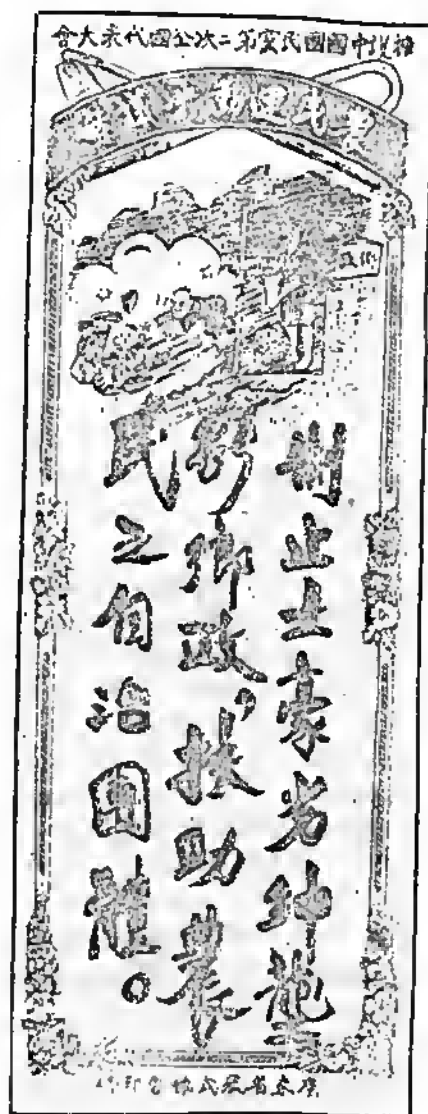 擁護中國國民黨第二次全國代表大會
制止土豪劣紳壟
斷鄉政，扶助農
民之自治團體。
廣東省農民協會印